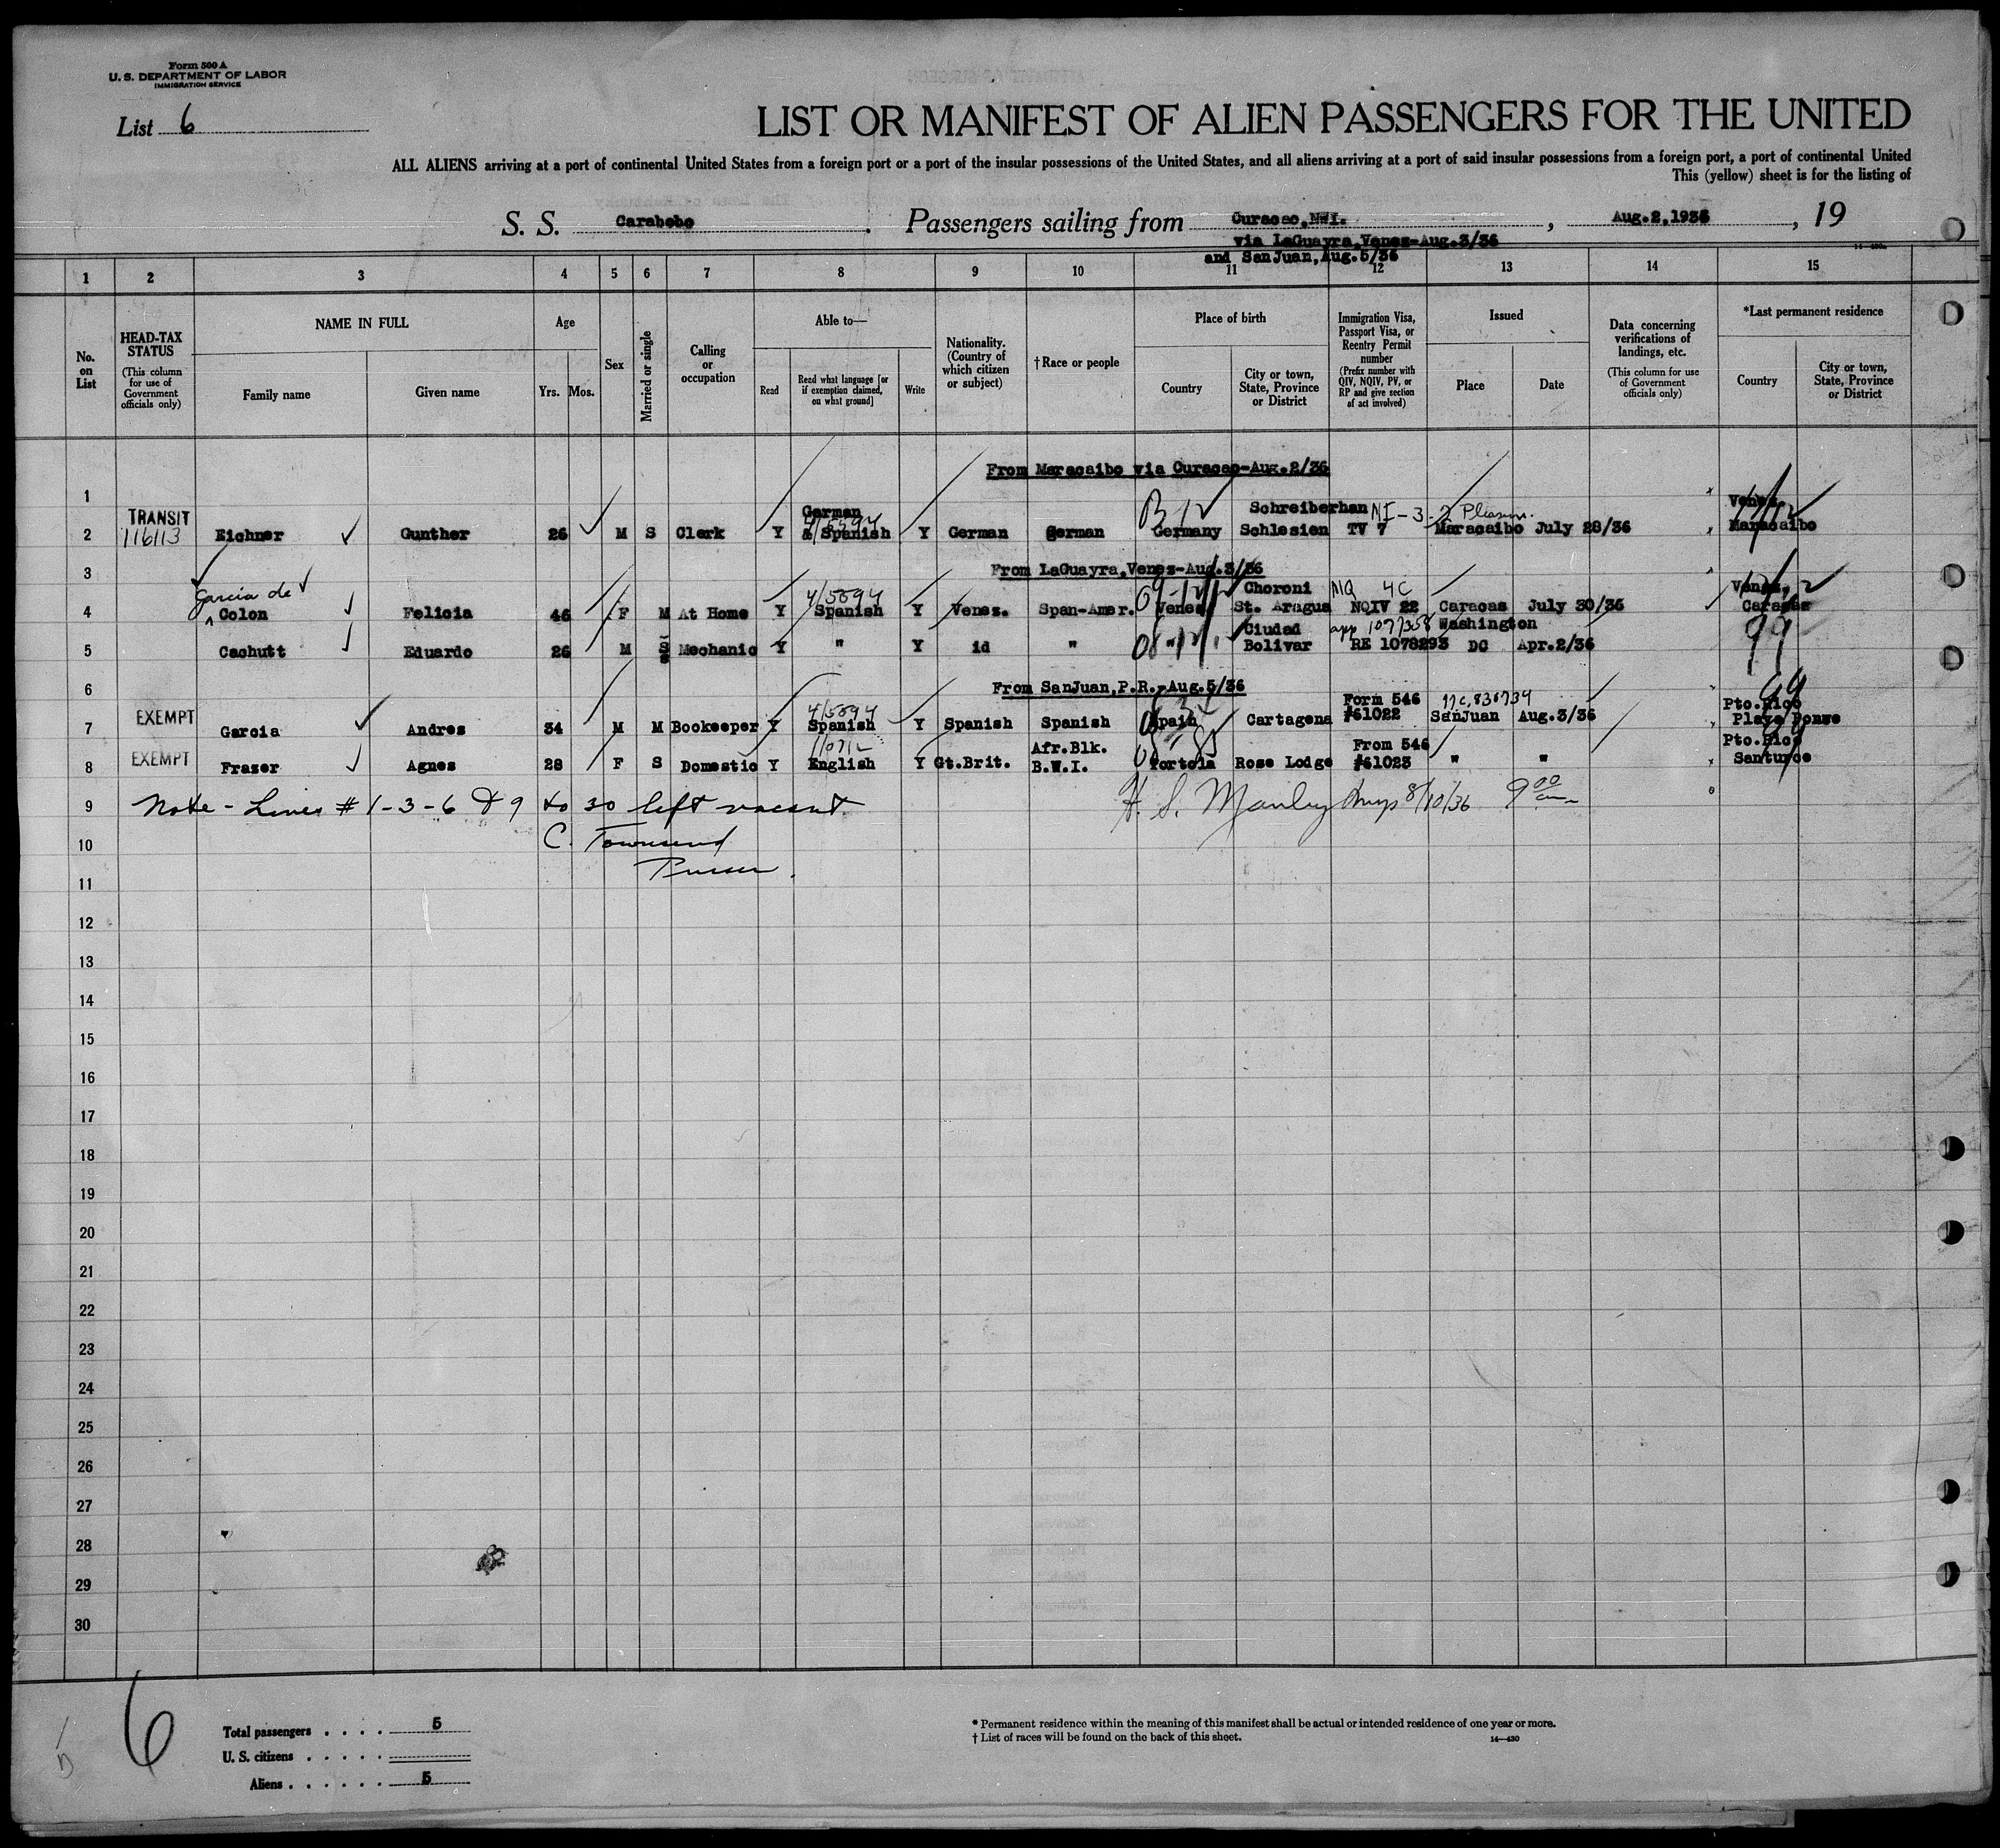 Form 500 A
U. S. DEPARTMENT OF LABOR
IMMIGRATION SERVICE
List 6
LIST OR MANIFEST OF ALIEN PASSENGERS FOR THE UNITED
ALL ALIENS arriving at a port of continental United States from a foreign port or a port of the insular possessions of the United States, and all aliens arriving at a port of said insular possessions from a foreign port, a port of continental United
This (yellow) sheet is for the listing of
S. S. Carabobo. Passengers sailing from Curacao, NWI. , Aug.2,1936 , 19
via LaGuayra,Venez-Aug.3/36
and SanJuan,Aug.5/36
1 2 3 4 5 6 7 8 9 10 11 12 13 14 15
No. on List
HEAD-TAX STATUS
(This column for use of Government officials only)
NAME IN FULL
Family name
Given name
Age
Yrs. Mos.
Sex
Married or single
Calling or occupation
Able to—
Read
Read what language [or if exemption claimed, on what ground]
Write
Nationality. (Country of which citizen or subject)
† Race or people
Place of birth
Country
City or town, State, Province or District
Immigration Visa, Passport Visa, or Reentry Permit number
(Prefix number with QIV, NQIV, PV, or RP and give section of act involved)
Issued
Place
Date
Data concerning verifications of landings, etc.
(This column for use of Government officials only)
*Last permanent residence
Country
City or town, State, Province or District
From Maracaibo via Curacao-Aug.2/36
1
TRANSIT German B 12 Schreiberhan NI-3-2 Pleasure. Venez
2 116113 Eichner Gunther 26 M S Clerk Y & Spanish Y German German Germany Schlesien TV 7 Maracaibo July 28/36 Maracaibo
3 From LaGuayra,Venez-Aug.3/36
Garcia de 4/5594 Choroni NQ 4C Venez,
4 Colon Felicia 46 F M At Home Y Spanish Y Venez. Span-Amer. Venez St. Aragua NQIV 22 Caracas July 30/36 Caracas
Ciudad Washington
5 Cachutt Eduardo 26 M S Mechanic Y " Y id " " Bolivar RE 1078293 DC Apr.2/36 99
6 From SanJuan,P.R.-Aug.5/36 99
EXEMPT 4/5594 Form 546 Pto.Rico
7 Garcia Andres 34 M M Bookeeper Y Spanish Y Spanish Spanish Spain Cartagena #61022 SanJuan Aug.3/36 Playa Ponse
EXEMPT Afr.Blk. From 546 Pto.Rico
8 Frazer Agnes 28 F S Domestic Y English Y Gt.Brit. B.W.I. Tortola Rose Lodge #61023 " " Santurce
9 Note - Lines # 1-3-6 & 9 to 30 left vacant H. S. Manley Insp 8/10/36 9 00 am
10 C. Townsend
11 Purser.
12
13
14
15
16
17
18
19
20
21
22
23
24
25
26
27
28
29
30
6
Total passengers . . . . 5
U. S. citizens . . . . .
Aliens . . . . . . 5
* Permanent residence within the meaning of this manifest shall be actual or intended residence of one year or more.
† List of races will be found on the back of this sheet.
14—430